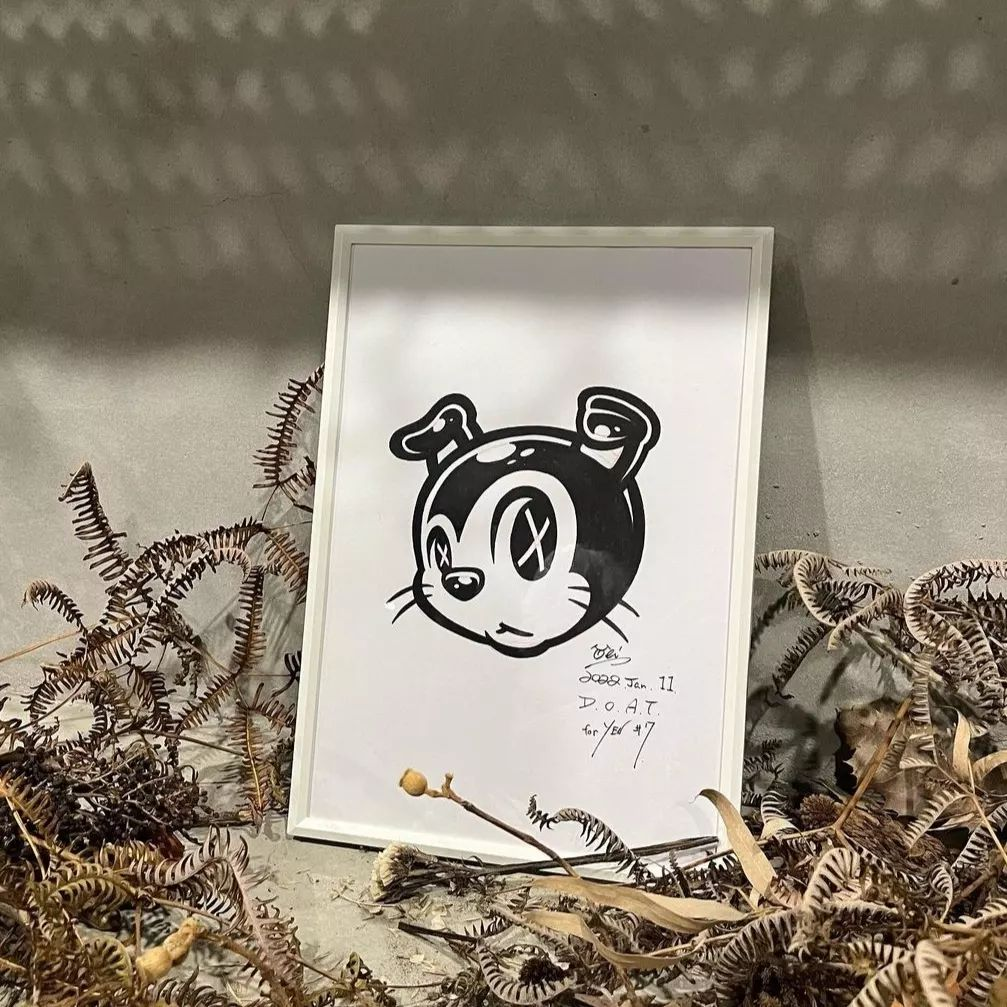 2022 Jan. 11.
D.O.A.T.
for YEN #7